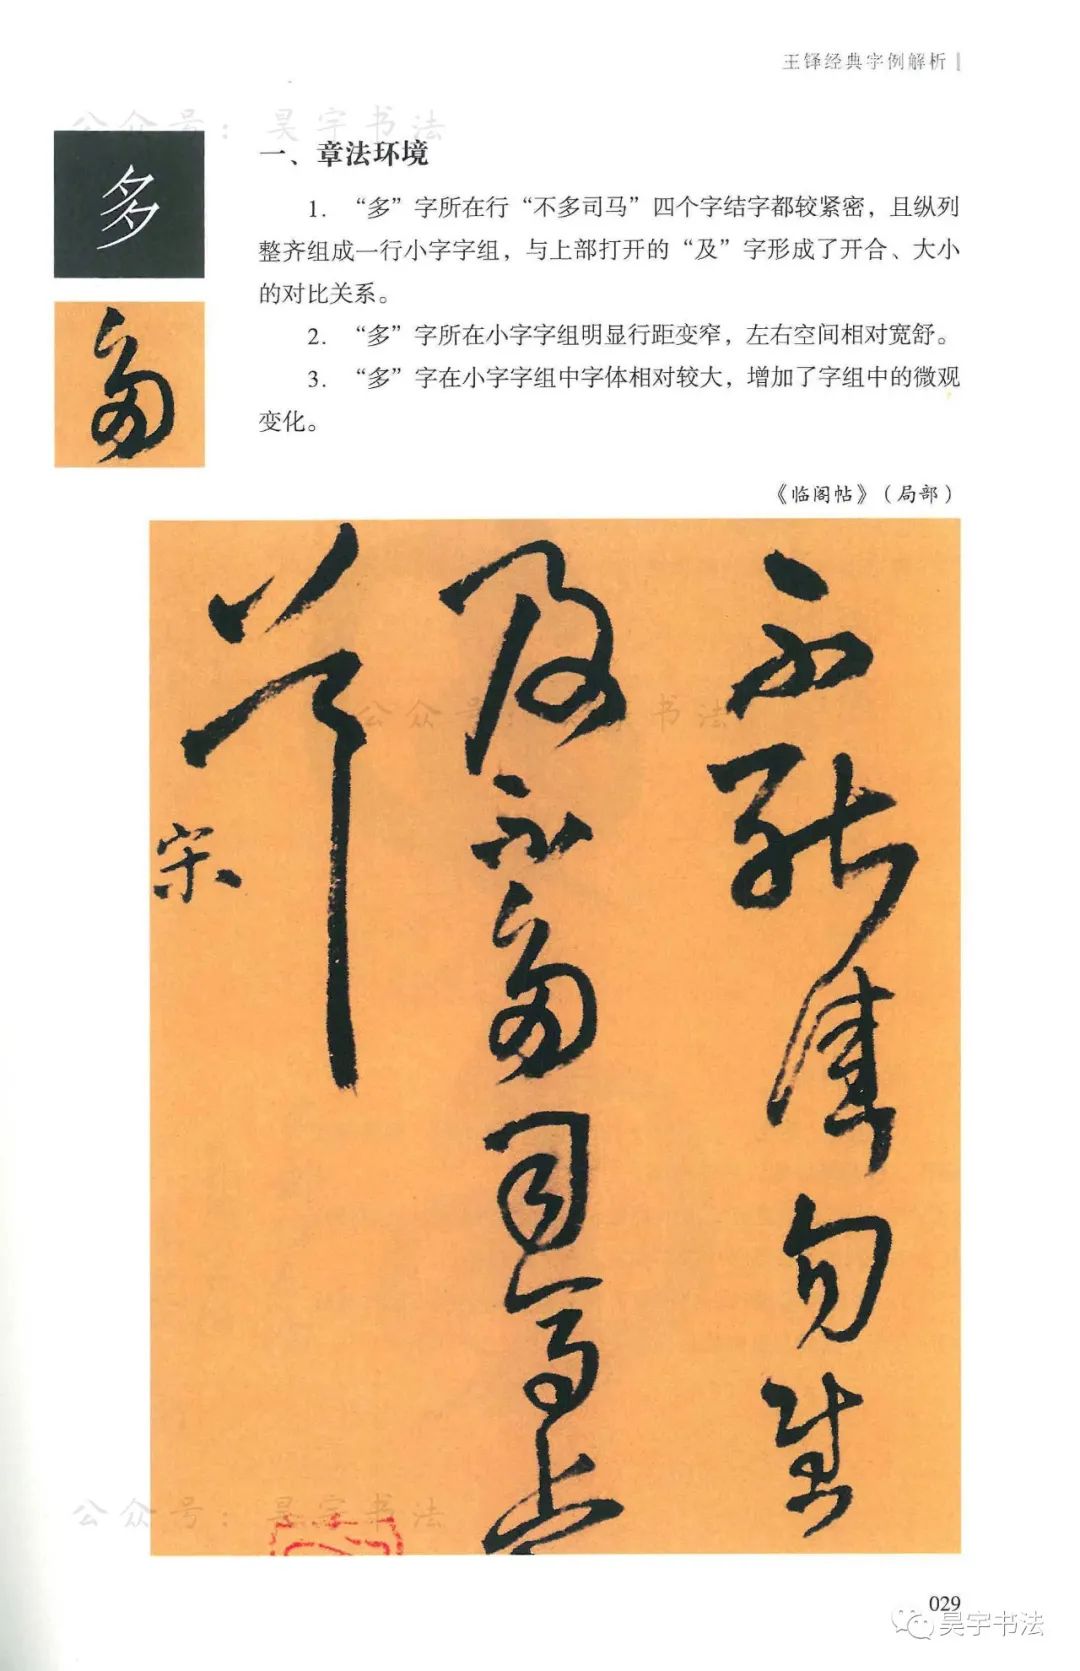 王铎经典字例解析
公众号：昊宇书法
多
多
一、章法环境
1. “多”字所在行“不多司马”四个字结字都较紧密，且纵列
整齐组成一行小字字组，与上部打开的“及”字形成了开合、大小
的对比关系。
2. “多”字所在小字字组明显行距变窄，左右空间相对宽舒。
3. “多”字在小字字组中字体相对较大，增加了字组中的微观
变化。
《临阁帖》（局部）
及不多司马
宋
公众号：昊宇书法
公众号：昊宇书法
029
昊宇书法